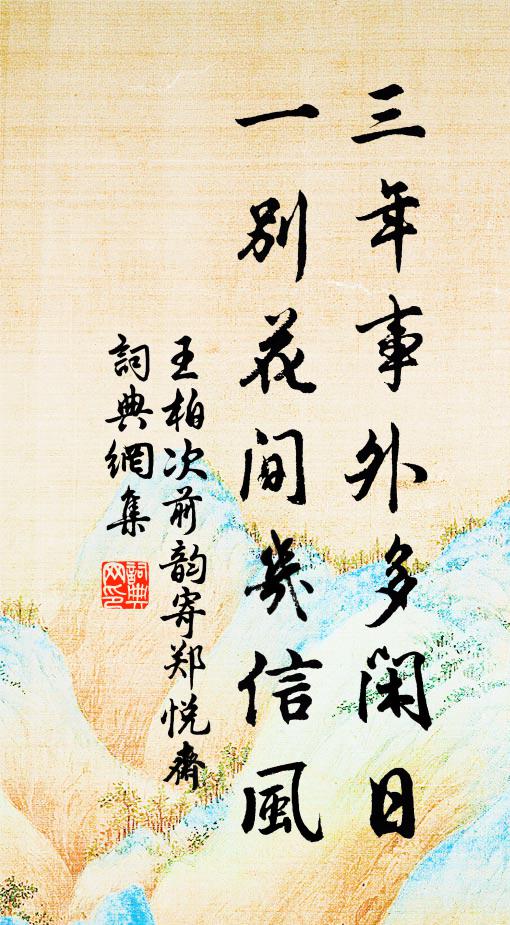 三年事外多闲日
一别花间几信风
王柏次前韵寄郑悦斋
詞典網集
詞典
网印